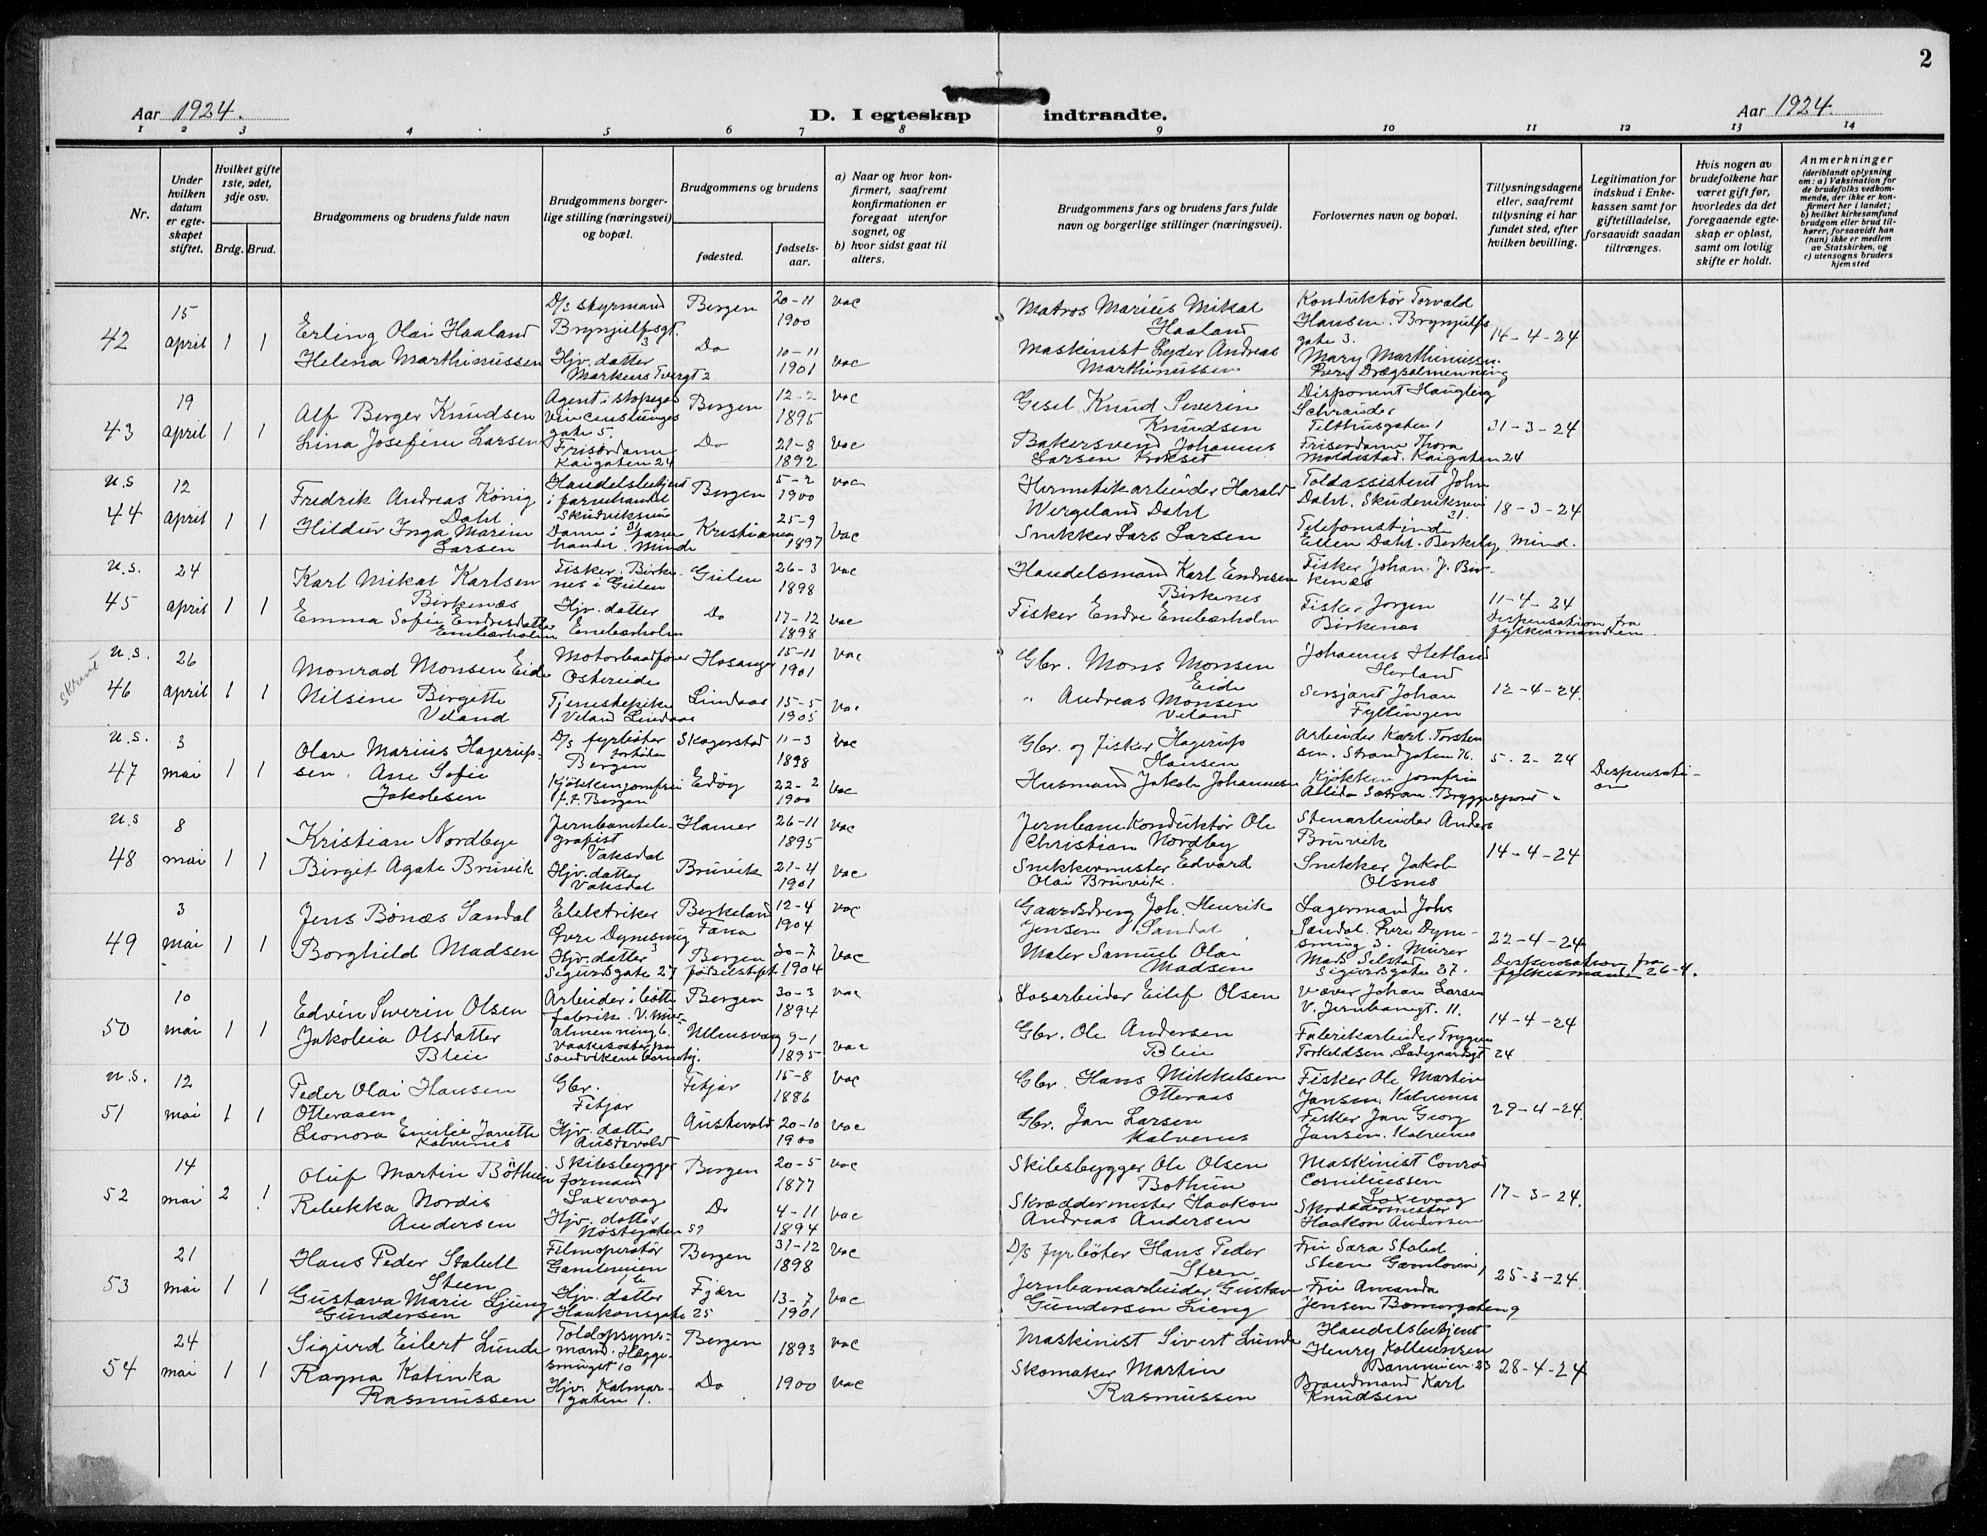 2
Aar 1924.
D. I egteskap indtraadte.
Aar 1924.
1 2 3 4 5 6 7 8 9 10 11 12 13 14
Nr.
Under hvilken datum er egteskapet stiftet.
Hvilket gifte 1ste, 2det, 3dje osv.
Brdg. Brud.
Brudgommens og brudens fulde navn
Brudgommens borgerlige stilling (næringsvei) og bopæl.
Brudgommens og brudens
fødested.
fødselsaar.
a) Naar og hvor konfirmert, saafremt konfirmationen er foregaat utenfor sognet, og
b) hvor sidst gaat til alters.
Brudgommens fars og brudens fars fulde navn og borgerlige stillinger (næringsvei).
Forlovernes navn og bopæl.
Tillysningsdagene eller, saafremt tillysning ei har fundet sted, efter hvilken bevilling.
Legitimation for indskud i Enkekassen samt for giftetilladelse, forsaavidt saadan tiltrænges.
Hvis nogen av brudefolkene har været gift før, hvorledes da det foregaaende egteskap er opløst, samt om lovlig skifte er holdt.
Anmerkninger
(deriblandt oplysning om: a) Vaksination for de brudefolks vedkommende, der ikke er konfirmert her i landet; b) hvilket kirkesamfund brudgom eller brud tilhører, forsaavidt han (hun) ikke er medlem av Statskirken, og c) utensogns bruders hjemsted
42 15 april 1 1
Erling Olai Haaland
D/s styrmand Brynjulfsgt. 3
Bergen 20-11 1900 vac
Matros Marius Mikal Haaland
Konduktør Torvald Hansen. Brynjulfsgate 3.
14-4-24
Helena Marthinussen
Hjv. datter Markens Tvergt 2
Do 10-11 1901 vac
Maskinist Lyder Andreas Marthinussen
Mary Marthinussen Øvre Drægsalmenning
43 19 april 1 1
Alf Berger Knudsen
Agent
gate 5
Bergen 12-2 1895 vac
Gesel Knud Severin Knudsen
Disponent
Tilthusgaten 1
31-3-24
Lina Josefine Larsen
Frisørdame Kaigaten 24
Do 21-8 1892 vac
Bakersvend Johannes Larsen
Frisørdame Thora Moldestad. Kaigaten 24
u.s 44 12 april 1 1
Fredrik Andreas König Dahl
Handelsbetjent i farvehandel Skudeviksvei 31
Bergen 5-2 1900 vac
Hermetikarbeider Harald Wergeland Dahl
Toldassistent John Dahl. Skudeviksvei 31.
18-3-24
Hildur Inga Marine Larsen
Dame i farvehandel. Minde
Kristiania 25-9 1897 vac
Snekker Lars Larsen
Telefonistinde Ellen Dahl. Birkely Mind.
u.s. 45 24 april 1 1
Karl Mikal Karlsen Birkenæs
Fisker. Birkenes i Gulen
Gulen 26-3 1898 vac
Handelsmand Karl Endresen Birkenes
Fisker Johan. J. Birkenæs
11-4-24
Emma Sofie Endresdatter Enebærholm
Hjv. datter Enebærholm
Do 17-12 1898 vac
Fisker Endre Enebærholm
Fisker Jørgen Birkenæs
Dispensation fra fylkesmanden.
u.s. 46 26 april 1 1
Monrad Monsen Eide
Motorbaadfører Ostereide
Hosanger 15-11 1901 vac
Gbr. Mons Monsen Eide
Johannes Hetland Herland
12-4-24.
Nilsine Birgette Veland
Tjenestepike Veland Lindaas
Lindaas 15-5 1905 vac
" Andreas Monsen Veland
Sersjant Johan Fyllingen
u.s. 47 3 mai 1 1
Olav Marius Hagerupsen.
D/s fyrbøter fortiden Bergen
Skogerstad 11-3 1898 vac
Gbr. og fisker Hagerup Hansen
Arbeider Karl. Torstensen. Strandgaten 76.
5-2-24
Ane Sofie Jakobsen
Kjøkkenjomfru f.t. Bergen
Edøy 22-2 1900 vac
Husmand Jakob Johannesen
Kjøkkenjomfru
Dispensation
u.s 48 8 mai 1 1
Kristian Nordbye
Jernbanetelegrafist Vaksdal
Hamar 26-11 1895 vac
Jernbanekonduktør Ole Christian Nordby
Stenarbeider Anders Bruvik
14-4-24
Birgit Agate Bruvik
Hjv. datter Vaksdal
Bruvik 21-4 1901 vac
Snekkermester Edvard Olai Bruvik.
Snekker Jakob Olsnes
49 3 mai 1 1
Jens Bønæs Sandal
Elektriker Øvre Dynesmug 3
Birkeland Fana 12-4 1904 vac
Gaardsdreng Joh. Henrik Jensen Sandal
Lagermand Johs Sandal. Øvre Dynesmug 3.
22-4-24
Borghild Madsen
Hjv. datter Sigurdsgate 27
Bergen fødselstift. 30-7 1904 vac
Maler Samuel Olai Madsen
Murer Mads Selstad Sigurdsgate 27.
Dispensation fra fylkesmanden 26-4.
50 10 mai 1 1
Edvin Severin Olsen
Arbeider i bøttefabrik. V. Muralmenning 6.
Bergen 30-3 1894 vac
Losarbeider Eilef Olsen
Væver Johan Larsen V. Jernbanegt. 11.
14-4-24
Jakobea Olsdatter Bleie
Sandvikens barnehj.
Ullensvang 9-1 1895 vac
Gbr. Ole Andersen Bleie
Fabrikarbeider Trygve Torkeldsen. Ladegaardsgt 24
u.s. 51 12 mai 1 1
Peder Olai Hansen Otteraaen
Gbr. Fitjar
Fitjar 15-8 1886 vac
Gbr. Hans Mikkelsen Otteraas
Fisker Ole Martin Jansen. Kalvenes
29-4-24.
Leonora Emilie Janette Kalvenes
Hjv. datter Austevold
Austevold 20-10 1900 vac
Gbr. Jan Larsen Kalvenes
Fisker Jan Georg Jansen. Kalvenes
52 14 mai 2 1
Oluf Martin Bøthun
Skibsbygger formand Laxevaag
Bergen 20-5 1877 vac
Skibsbygger Ole Olsen Bothun
Maskinist Conrad Corneliussen Laxevaag
17-3-24.
Rebekka Nordis Andersen
Hjv. datter Nøstegaten 59
Do 4-11 1894 vac
Skræddermester Haakon Andreas Andersen
Skræddermester Haakon Andersen
53 21 mai 1 1
Hans Peder Stabell Steen
Filmoperatør Gamleveien 1 b
Bergen 31-12 1898 vac
D/s fyrbøter Hans Peder Steen
Fru Sara
25-3-24.
Gustava Marie Ljung Gundersen
Hjv. datter Haakonsgate 25
Fjære 13-7 1901 vac
Jernbanearbeider Gustav Gundersen
Fru Amanda Jensen
54 24 mai 1 1
Sigurd Eilert Lunde
Toldopsynsmand. Heggesmuget 10
Bergen 1893 vac
Maskinist Sivert Lunde
Handelsbetjent Henry
28-4-24
Ragna Katinka Rasmussen
Hjv. Kalmargaten 7.
Do 1900 vac
Skomaker Martin Rasmussen
Brandmand Karl Knudsen